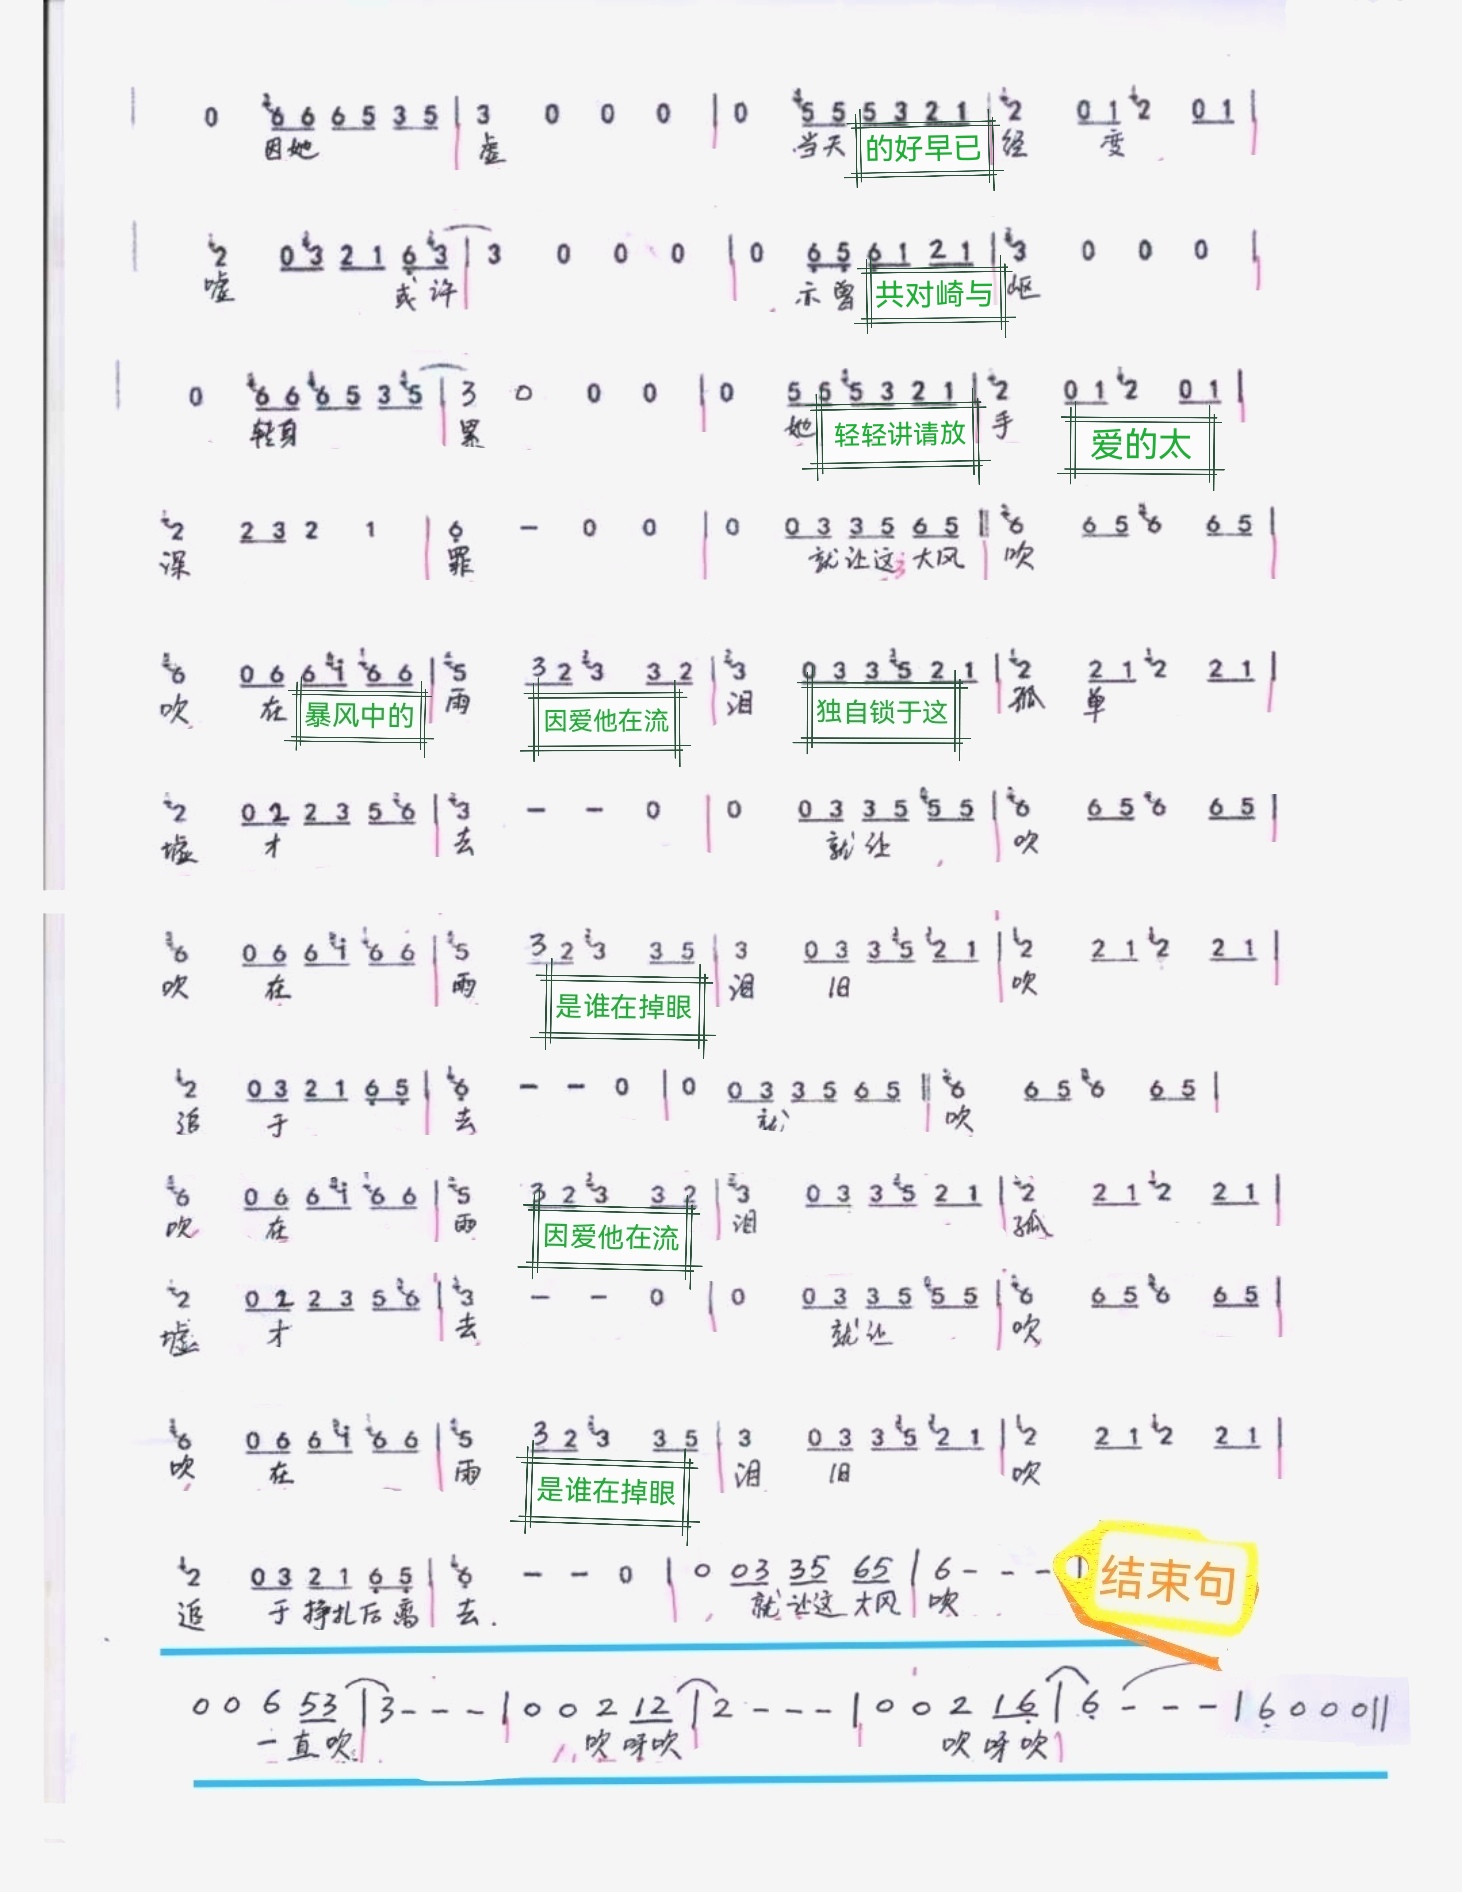 0 66 65 35 | 3 0 0 0 | 0 55 53 21 | 2 01 2 01 |
因她 虚 当天 的好早已 经 变
2 03 21 63 | 3 0 0 0 | 0 65 61 21 | 3 0 0 0 |
嘘 或许 亦曾 共对崎与 岖
0 66 65 35 | 3 0 0 0 | 0 55 53 21 | 2 01 2 01 |
轻身 累 她 轻轻讲请放 手 爱的太
2 23 2 1 | 6 - 0 0 | 0 03 35 65 || 6 65 6 65 |
深 罪 就让这大风 吹
6 06 61 66 | 5 32 3 32 | 3 03 35 21 | 2 21 2 21 |
吹 在 暴风中的 雨 因爱他在流 泪 独自锁于这 孤 单
2 02 23 56 | 3 - - 0 | 0 03 35 55 | 6 65 6 65 |
墟 才 去 就让 吹
6 06 61 66 | 5 32 3 35 | 3 03 35 21 | 2 21 2 21 |
吹 在 雨 是谁在掉眼 泪 旧 吹
2 03 21 65 | 6 - - 0 | 0 03 35 65 || 6 65 6 65 |
追 于 去 就 吹
6 06 61 66 | 5 32 3 32 | 3 03 35 21 | 2 21 2 21 |
吹 在 雨 因爱他在流 泪 孤
2 02 23 56 | 3 - - 0 | 0 03 35 55 | 6 65 6 65 |
墟 才 去 就让 吹
6 06 61 66 | 5 32 3 35 | 3 03 35 21 | 2 21 2 21 |
吹 在 雨 是谁在掉眼 泪 旧 吹
2 03 21 65 | 6 - - 0 | 0 03 35 65 | 6 - - - | 结束句
追 于挣扎后离 去. 就让这大风 吹
0 0 6 53 | 3 - - - | 0 0 2 12 | 2 - - - | 0 0 2 16 | 6 - - - | 6 0 0 0 ||
一直吹 吹呀吹 吹呀吹